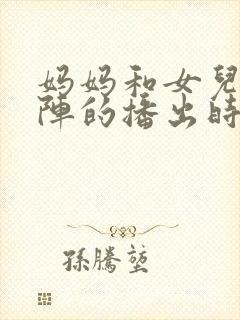 妈妈和女兒
陣的播出時
孫騰莛